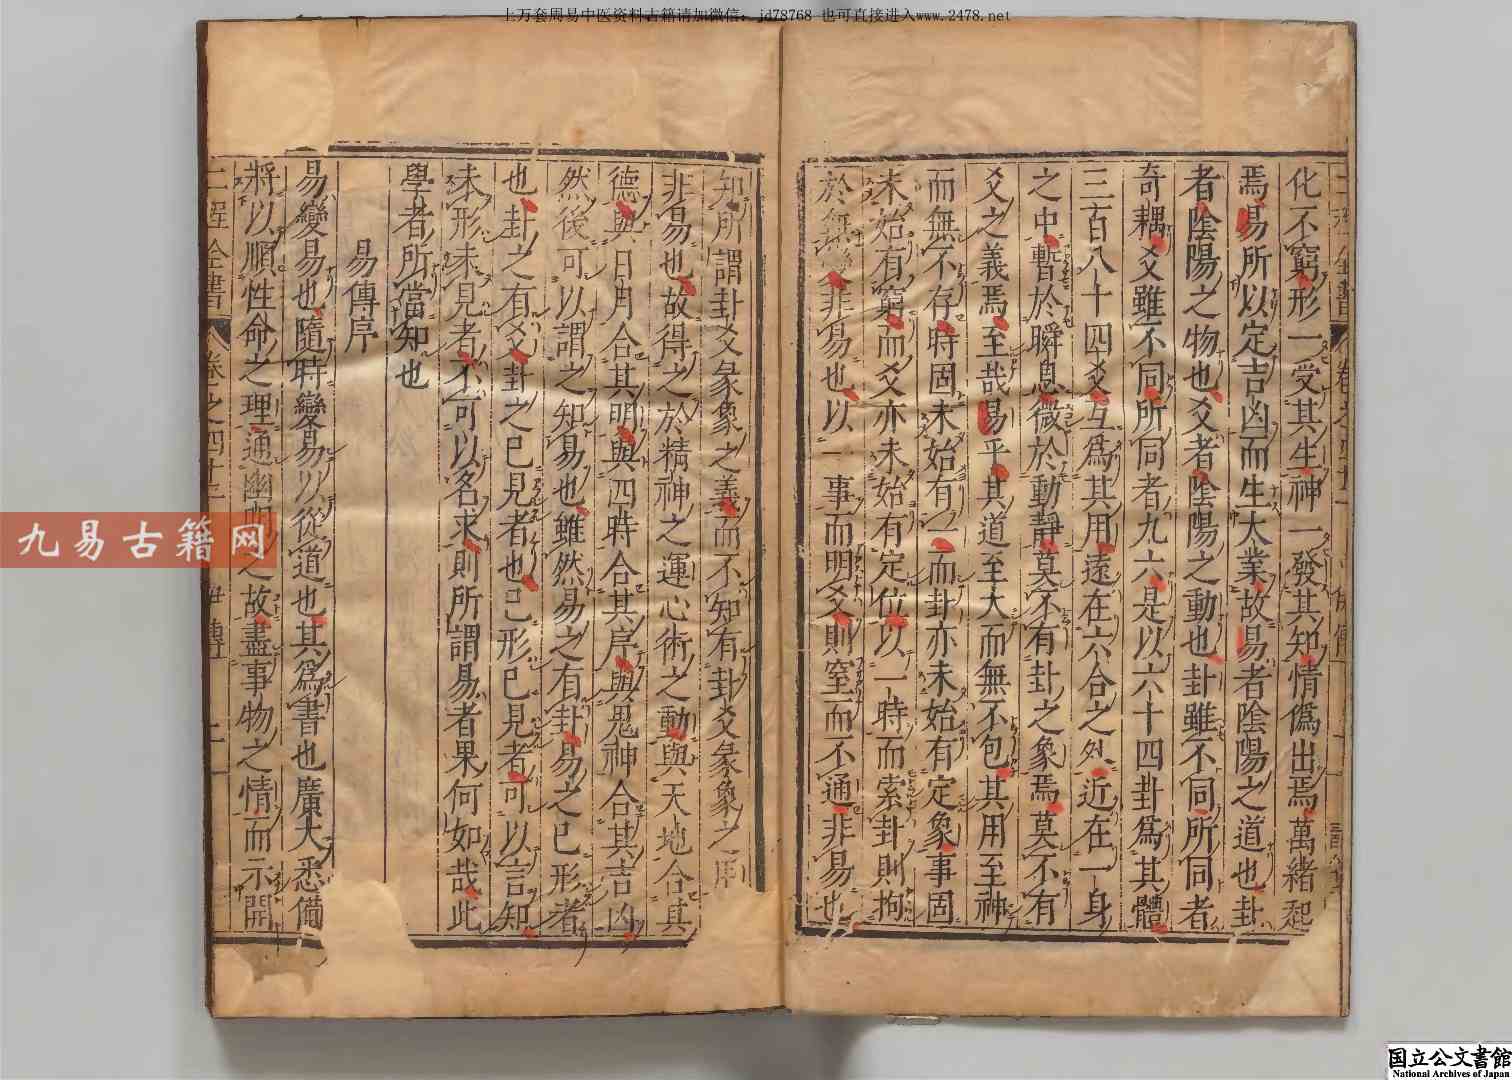 上万套周易中医资料古籍请加微信：jd78768 也可直接进入www.2478.net
化不窮形一受其生神一發其知情僞出焉萬緒起
焉易所以定吉凶而生大業故易者陰陽之道也卦
者陰陽之物也爻者陰陽之動也卦雖不同所同者
奇耦爻雖不同所同者九六是以六十四卦爲其體
三百八十四爻互爲其用遠在六合之外近在一身
之中暫於瞬息微於動靜莫不有卦之象焉莫不有
爻之義焉至哉易乎其道至大而無不包其用至神
而無不存時固未始有一而卦亦未始有定象事固
未始有窮而爻亦未始有定位以一時而索卦則拘
於無變非易也以一事而明爻則窒而不通非易也
知所謂卦爻彖象之義而不知有卦爻彖象之用
非易也故得之於精神之運心術之動與天地合其
德與日月合其明與四時合其序與鬼神合其吉凶
然後可以謂之知易也雖然易之有卦易之已形者
也卦之有爻卦之已見者也已形已見者可以言知
未形未見者不可以名求則所謂易者果何如哉此
學者所當知也
易傳序
易變易也隨時變易以從道也其爲書也廣大悉備
將以順性命之理通幽明之故盡事物之情而示開
二程全書 卷之四十三
九易古籍网
国立公文書館
National Archives of Japan